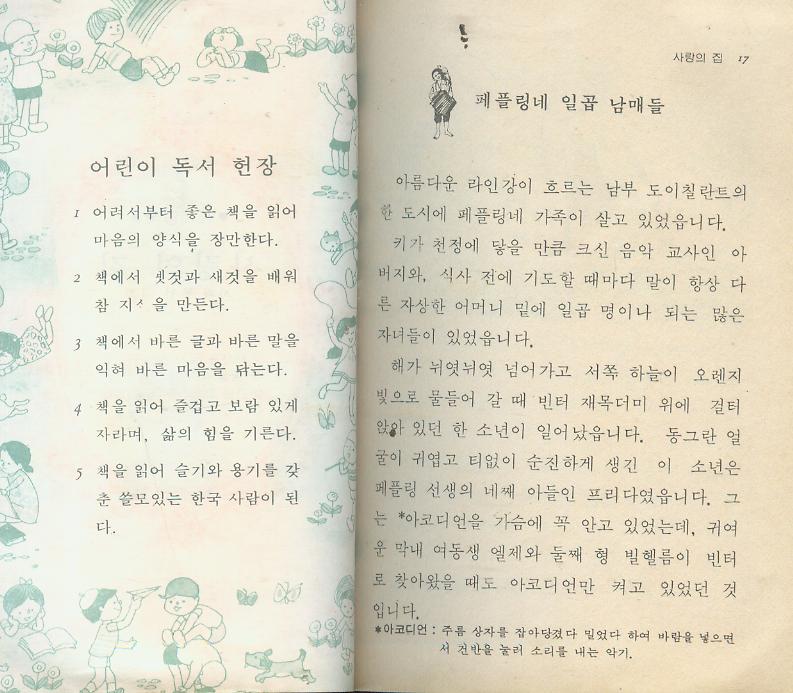 어린이 독서 헌장
1 어려서부터 좋은 책을 읽어
마음의 양식을 장만한다.
2 책에서 옛것과 새것을 배워
참 지식을 만든다.
3 책에서 바른 글과 바른 말을
익혀 바른 마음을 닦는다.
4 책을 읽어 즐겁고 보람 있게
자라며, 삶의 힘을 기른다.
5 책을 읽어 슬기와 용기를 갖
춘 쓸모있는 한국 사람이 된
다.
사랑의 집 17
페플링네 일곱 남매들
아름다운 라인강이 흐르는 남부 도이칠란트의
한 도시에 페플링네 가족이 살고 있었읍니다.
키가 천정에 닿을 만큼 크신 음악 교사인 아
버지와, 식사 전에 기도할 때마다 말이 항상 다
른 자상한 어머니 밑에 일곱 명이나 되는 많은
자녀들이 있었읍니다.
해가 뉘엿뉘엿 넘어가고 서쪽 하늘이 오렌지
빛으로 물들어 갈 때 빈터 재목더미 위에 걸터
앉아 있던 한 소년이 일어났읍니다. 동그란 얼
굴이 귀엽고 티없이 순진하게 생긴 이 소년은
페플링 선생의 네째 아들인 프리다였읍니다. 그
는 *아코디언을 가슴에 꼭 안고 있었는데, 귀여
운 막내 여동생 엘제와 둘째 형 빌헬름이 빈터
로 찾아왔을 때도 아코디언만 켜고 있었던 것
입니다.
*아코디언 : 주름 상자를 잡아당겼다 밀었다 하여 바람을 넣으면
서 건반을 눌러 소리를 내는 악기.